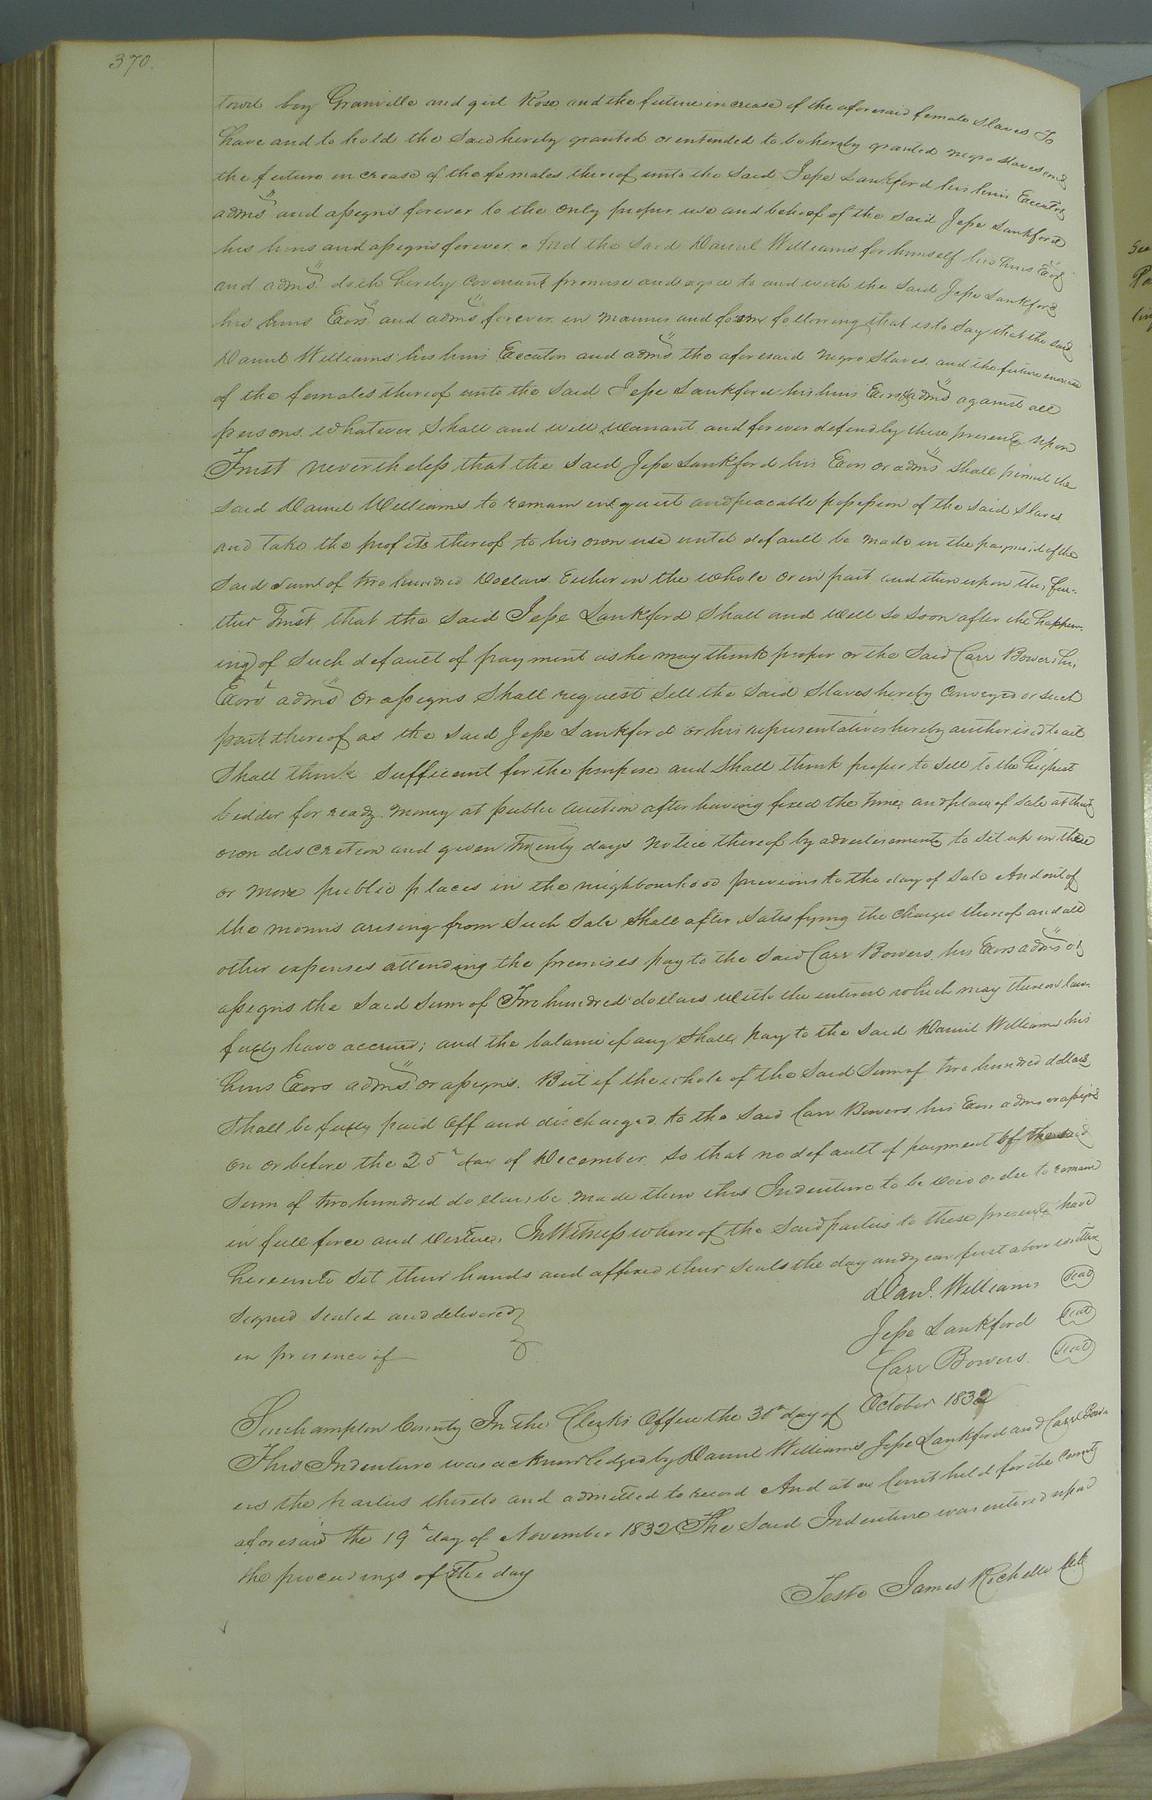 370.
towit boy Granville and girl Rose and the future increase of the aforesaid female slaves To
have and to hold the said hereby granted or intended to be hereby granted negro slaves and
the future increase of the females thereof unto the said Jesse Lankford his heirs Executors
adms and assigns forever to the only proper use and behoof of the said Jesse Lankford
his heirs and assigns forever. And the said Daniel Williams for himself his heirs Exors
and adms doth hereby covenant promise and agree to and with the said Jesse Lankford
his heirs Exors and adms forever in manner and form following that is to say that the said
Daniel Williams his heirs Executors and adms the aforesaid negro slaves and the future increase
of the females thereof unto the said Jesse Lankford his heirs Exors & adms against all
persons whatever shall and will warrant and forever defend by these presents upon
Trust nevertheless that the said Jesse Lankford his Exors or adms shall permit the
said Daniel Williams to remain in quiet and peacable possession of the said slaves
and take the profits thereof to his own use until default be made in the payment of the
said sum of two hundred dollars Either in the whole or in part and then upon this fur-
ther Trust that the said Jesse Lankford shall and will so soon after the happen-
ing of such default of payment as he may think proper or the said Carr Bowers his
Exors adms or assigns shall request sell the said slaves hereby conveyed or such
part thereof as the said Jesse Lankford or his representatives hereby authorised to act
shall think sufficient for the purpose and shall think proper to sell to the highest
bidder for ready money at public auction after having fixed the time and place of sale at their
own discretion and given twenty days notice thereof by advertisements to set up in three
or more public places in the neighbourhood previous to the day of sale And out of
the monies arising from such sale shall after satisfying the charges thereof and all
other expenses attending the premises pay to the said Carr Bowers his Exors adms or
assigns the said sum of Two hundred dollars with the interest which may thereon law-
fully have accrued; and the balance if any shall pay to the said Daniel Williams his
heirs Exors adms or assigns. But if the whole of the said sum of two hundred dollars
shall be fully paid off and discharged to the said Carr Bowers his Exors adms or assigns
on or before the 25th day of December so that no default of payment of the said
sum of two hundred dollars be made then this Indenture to be void or else to remain
in full force and virtue. In Witness whereof the said parties to these presents have
hereunto set their hands and affixed their seals the day and year first above written
Danl. Williams seal
signed sealed and delivered
Jesse Lankford seal
in presence of
Carr Bowers. seal
Southampton County In the Clerks Office the 30th day of October 1832
This Indenture was acknowledged by Daniel Williams Jesse Lankford and Carr Bow-
ers the parties thereto and admitted to record And at a Court held for the County
aforesaid the 19th day of November 1832 The said Indenture was entered upon
the proceedings of the day
Teste James Rochelle Clk